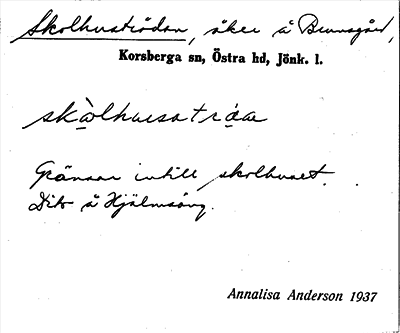 Skolhuströdan, åker å Brunnsgård,
Korsberga sn, Östra hd, Jönk. l.
skòlhusatrǿda
Gränsar intill skolhuset.
Dito å Hjälmsäng.
Annalisa Anderson 1937